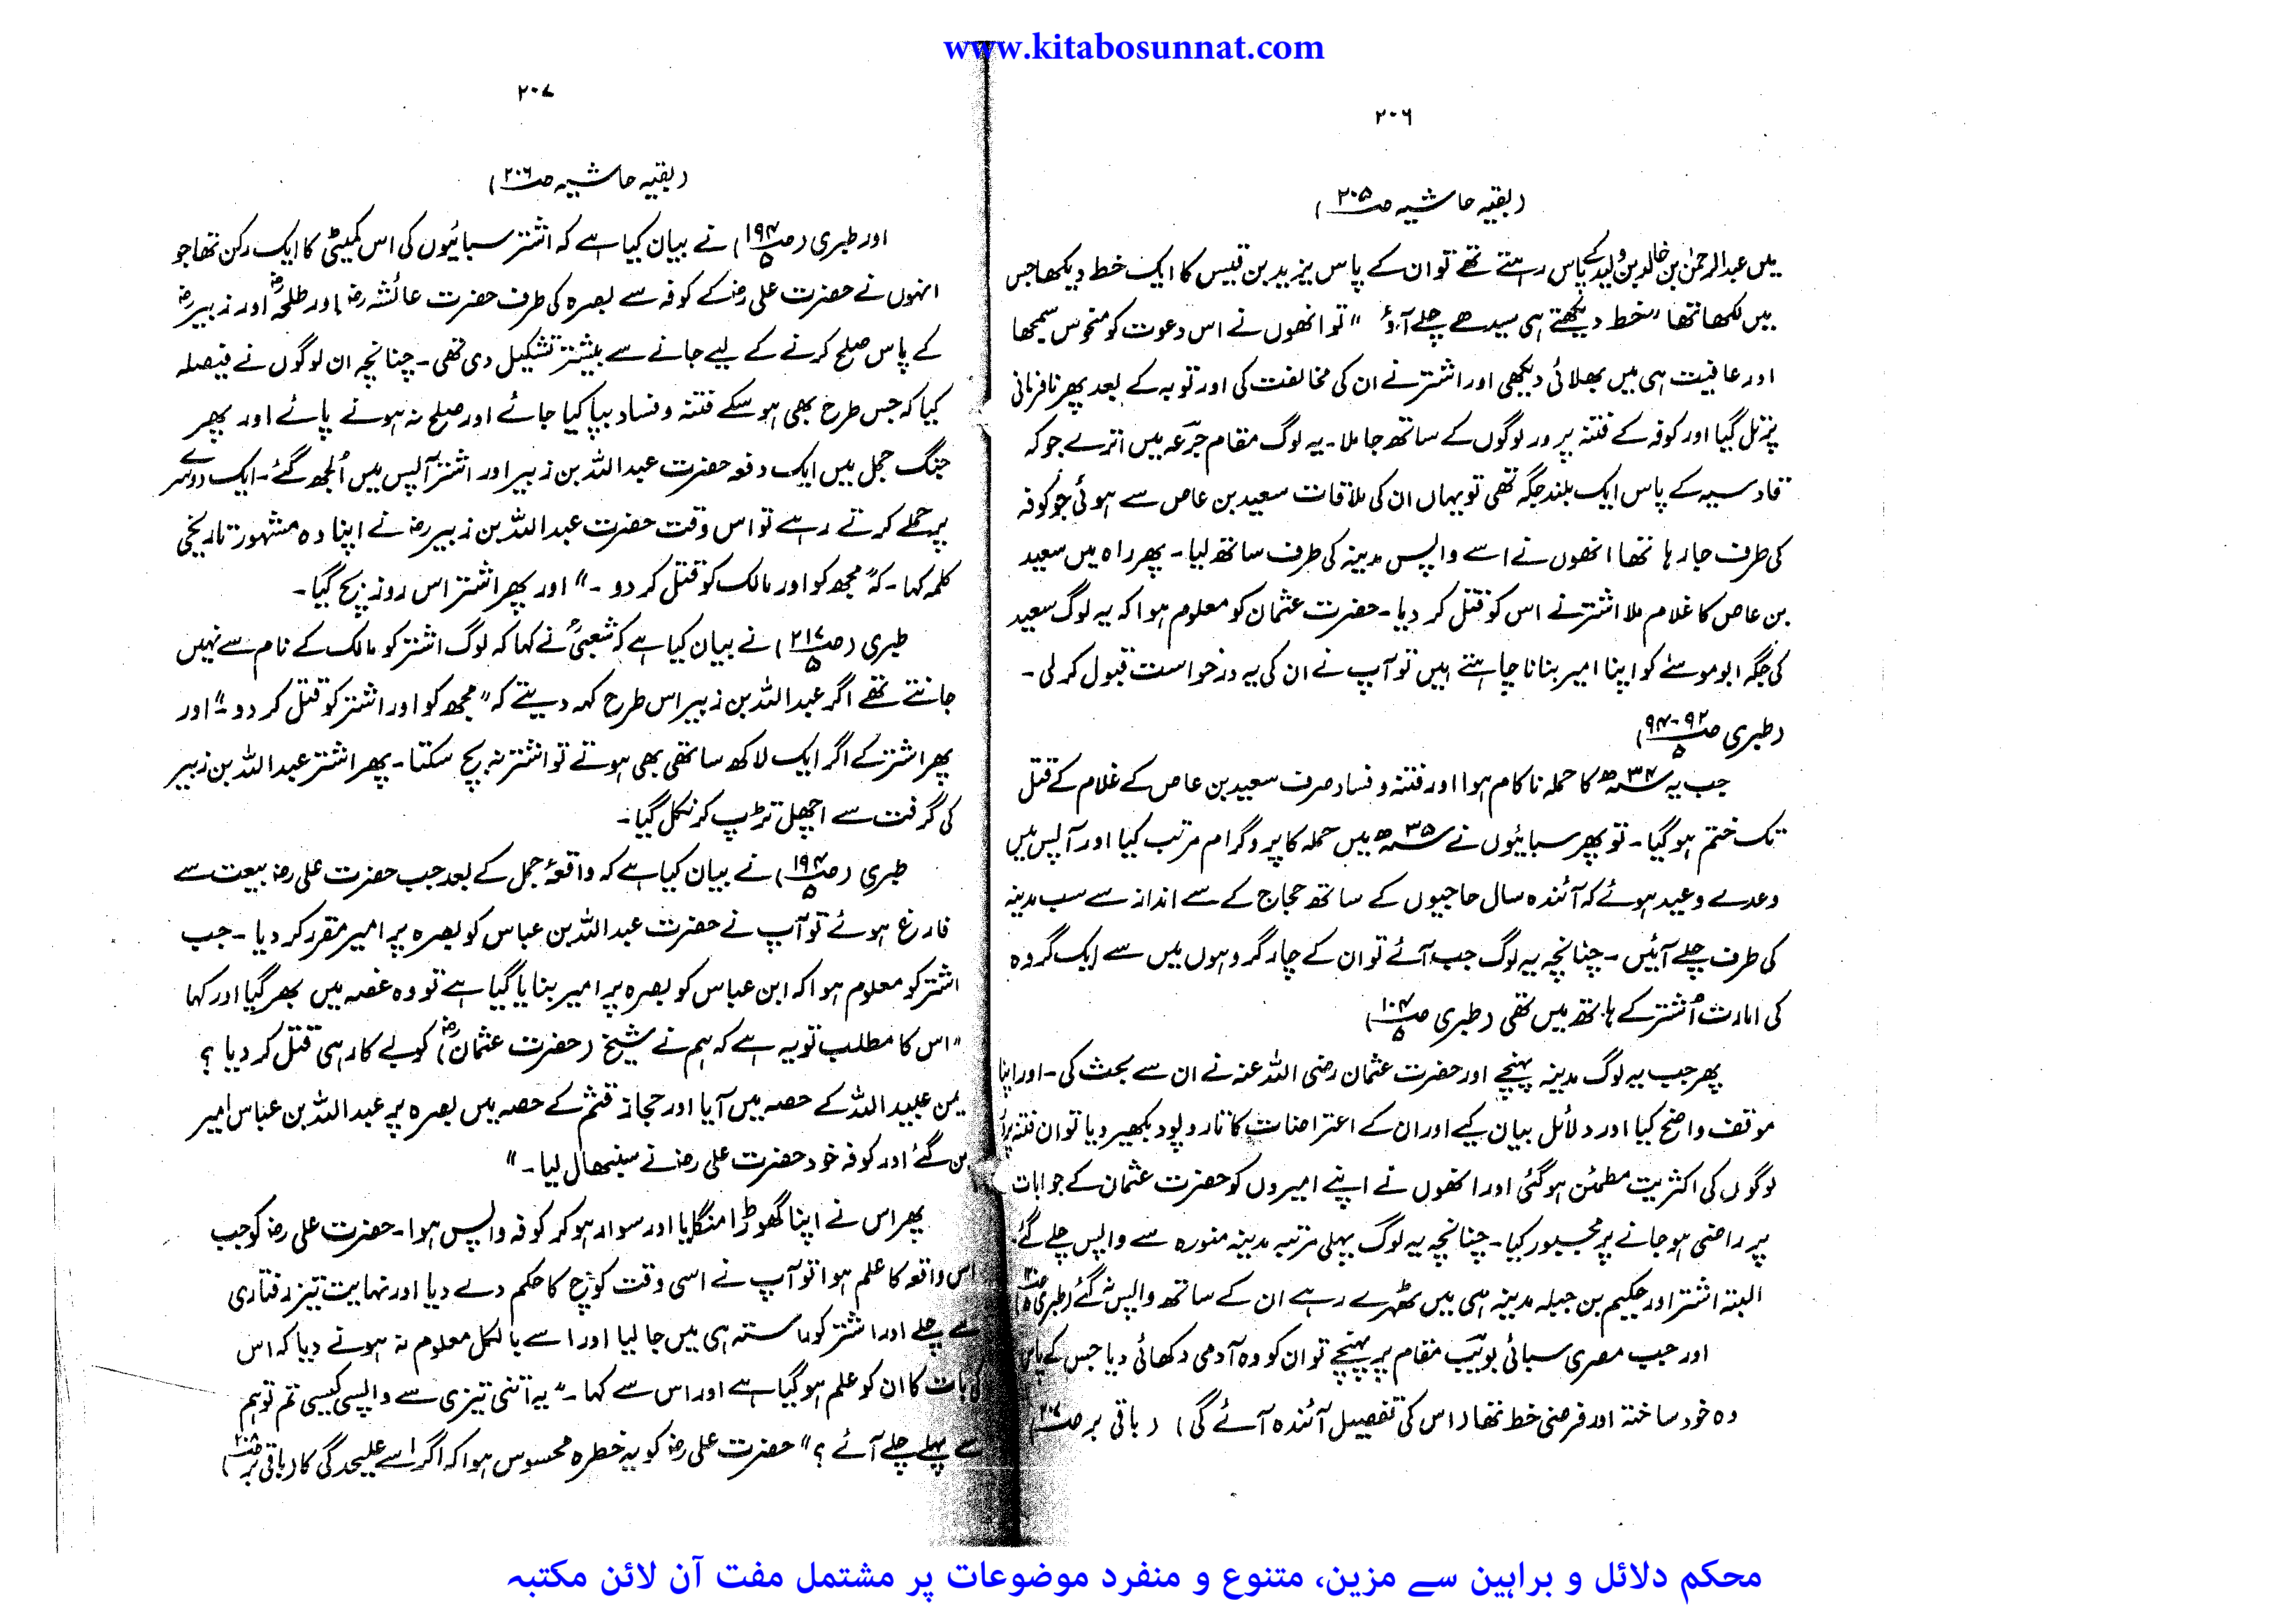 www.kitabosunnat.com
۲۰۶
(بقیہ حاشیہ صـ۲۰۵)
میں عبدالرحمٰن بن خالد بن ولید کے پاس رہتے تھے تو ان کے پاس یزید بن قیس کا ایک خط دیکھا جس
میں لکھا تھا "خط دیکھتے ہی سیدھے چلے آؤ" تو انھوں نے اس دعوت کو منحوس سمجھا
اور عافیت ہی میں بھلائی دیکھی اور اشتر نے ان کی مخالفت کی اور توبہ کے بعد پھر نافرمانی
پر تل گیا اور کوفہ کے فتنہ پرور لوگوں کے ساتھ جا ملا۔ یہ لوگ مقام جرَعہ میں اترے جو کہ
قادسیہ کے پاس ایک بلند جگہ تھی تو یہاں ان کی ملاقات سعید بن عاص سے ہوئی جو کوفہ
کی طرف جا رہا تھا انھوں نے اسے واپس مدینہ کی طرف ساتھ لیا۔ پھر راہ میں سعید
بن عاص کا غلام ملا اشتر نے اس کو قتل کر دیا۔ حضرت عثمان کو معلوم ہوا کہ یہ لوگ سعید
کی جگہ ابو موسےٰ کو اپنا امیر بنانا چاہتے ہیں تو آپ نے ان کی یہ درخواست قبول کر لی۔
(طبری صـ۹۲-۹۴/۵)
جب یہ ۳۴ھ کا حملہ ناکام ہوا اور فتنہ و فساد صرف سعید بن عاص کے غلام کے قتل
تک ختم ہو گیا۔ تو پھر سبائیوں نے ۳۵ھ میں حملہ کا پروگرام مرتب کیا اور آپس میں
وعدے وعید ہوئے کہ آئندہ سال حاجیوں کے ساتھ حجاج کے سے انداز سے سب مدینہ
کی طرف چلے آئیں۔ چنانچہ یہ لوگ جب آئے تو ان کے چار گروہوں میں سے ایک گروہ
کی امارت اُشتر کے ہاتھ میں تھی (طبری صـ۱۰۴/۵)
پھر جب یہ لوگ مدینہ پہنچے اور حضرت عثمان رضی اللہ عنہ نے ان سے بحث کی۔ اور اپنا
موقف واضح کیا اور دلائل بیان کیے اور ان کے اعتراضات کا تار و پود بکھیر دیا تو ان فتنہ
لوگوں کی اکثریت مطمئن ہو گئی اور انھوں نے اپنے امیروں کو حضرت عثمان کے جوابات
پر راضی ہو جانے پر مجبور کیا۔ چنانچہ یہ لوگ پہلی مرتبہ مدینہ منورہ سے واپس چلے گئے
البتہ اشتر اور حکیم بن جبلہ مدینہ ہی میں ٹھہرے رہے ان کے ساتھ واپس نہ گئے (طبری
اور جب مصری سبائی بویَب مقام پر پہنچے تو ان کو وہ آدمی دکھائی دیا جس کے پاس
وہ خود ساختہ اور فرضی خط تھا (اس کی تفصیل آئندہ آئے گی) (باقی بر صـ۲۰۷)
۲۰۷
(بقیہ حاشیہ صـ۲۰۶)
اور طبری (صـ۱۹۴/۵) نے بیان کیا ہے کہ اشتر سبائیوں کی اس کمیٹی کا ایک رکن تھا جو
انہوں نے حضرت علی رضؓ کے کوفہ سے بصرہ کی طرف حضرت عائشہ رضؓ اور طلحہؓ اور زبیرؓ
کے پاس صلح کرنے کے لیے جانے سے بیشتر تشکیل دی تھی۔ چنانچہ ان لوگوں نے فیصلہ
کیا کہ جس طرح بھی ہو سکے فتنہ و فساد بپا کیا جائے اور صلح نہ ہونے پائے اور پھر
جنگ جمل میں ایک دفعہ حضرت عبداللہ بن زبیر اور اشتر آپس میں اُلجھ گئے۔ ایک دوسرے
پر حملے کرتے رہے تو اس وقت حضرت عبداللہ بن زبیر رضؓ نے اپنا وہ مشہور تاریخی
کلمہ کہا۔ کہ "مجھ کو اور مالک کو قتل کر دو۔" اور پھر اشتر اس روز بچ گیا۔
طبری (صـ۲۱۷/۵) نے بیان کیا ہے کہ شعبیؒ نے کہا کہ لوگ اشتر کو مالک کے نام سے نہیں
جانتے تھے اگر عبداللہ بن زبیر اس طرح کہہ دیتے کہ "مجھ کو اور اشتر کو قتل کر دو۔" اور
پھر اشتر کے اگر ایک لاکھ ساتھی بھی ہوتے تو اشتر نہ بچ سکتا۔ پھر اشتر عبداللہ بن زبیر
کی گرفت سے اچھل تڑپ کر نکل گیا۔
طبری (صـ۱۹۴/۵) نے بیان کیا ہے کہ واقعۂ جمل کے بعد جب حضرت علی رضؓ بیعت سے
فارغ ہوئے تو آپ نے حضرت عبداللہ بن عباس کو بصرہ پر امیر مقرر کر دیا۔ جب
اشتر کو معلوم ہوا کہ ابن عباس کو بصرہ پر امیر بنایا گیا ہے تو وہ غصہ میں بھر گیا اور کہا
"اس کا مطلب تو یہ ہے کہ ہم نے شیخ (حضرت عثمانؓ) کو بے کار ہی قتل کر دیا؟
یمن عبیداللہ کے حصہ میں آیا اور حجاز قثم کے حصہ میں بصرہ پر عبداللہ بن عباس امیر
بن گئے اور کوفہ خود حضرت علی رضؓ نے سنبھال لیا۔"
پھر اس نے اپنا گھوڑا منگایا اور سوار ہو کر کوفہ واپس ہوا۔ حضرت علی رضؓ کو جب
اس واقعہ کا علم ہوا تو آپ نے اسی وقت کوُچ کا حکم دے دیا اور نہایت تیز رفتاری
سے چلے اور اشتر کو راستہ ہی میں جا لیا اور اسے بالکل معلوم نہ ہونے دیا کہ اس
کی بات کا ان کو علم ہو گیا ہے اور اس سے کہا۔ "یہ اتنی تیزی سے واپسی کیسی تم تو ہم
سے پہلے چلے آئے؟" حضرت علی رضؓ کو یہ خطرہ محسوس ہوا کہ اگر اسے علیحدگی کا (باقی بر صـ۲۰۸)
محکم دلائل و براہین سے مزین، متنوع و منفرد موضوعات پر مشتمل مفت آن لائن مکتبہ